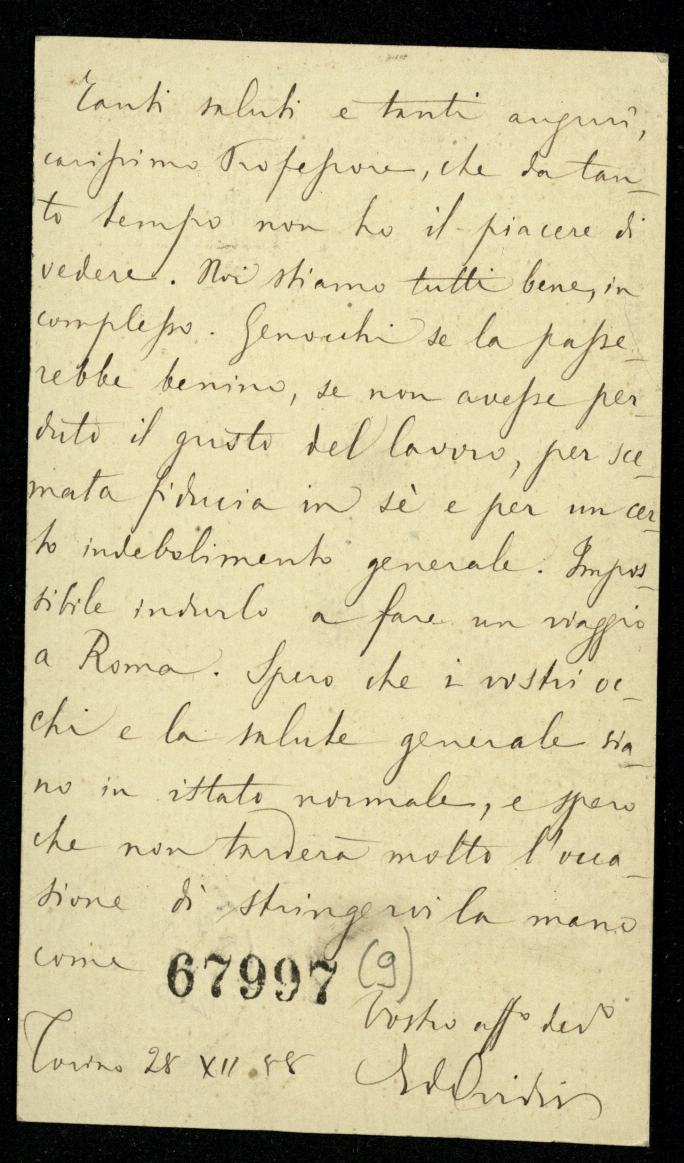 Tanti saluti e tanti augurî,
carissimo Professore, che da tan-
to tempo non ho il piacere di
vedere. Noi stiamo tutti bene, in
complesso. Genocchi se la passe-
rebbe benino, se non avesse per-
duto il gusto del lavoro, per sce-
mata fiducia in sè e per un cer-
to indebolimento generale. Impos-
sibile indurlo a fare un viaggio
a Roma. Spero che i vostri oc-
chi e la salute generale sia-
no in istato normale, e spero
che non tarderà molto l'occa-
sione di stringervi la mano
come 67997 (9)
Vostro affº devº
Torino 28 XII 88 EdOvidio